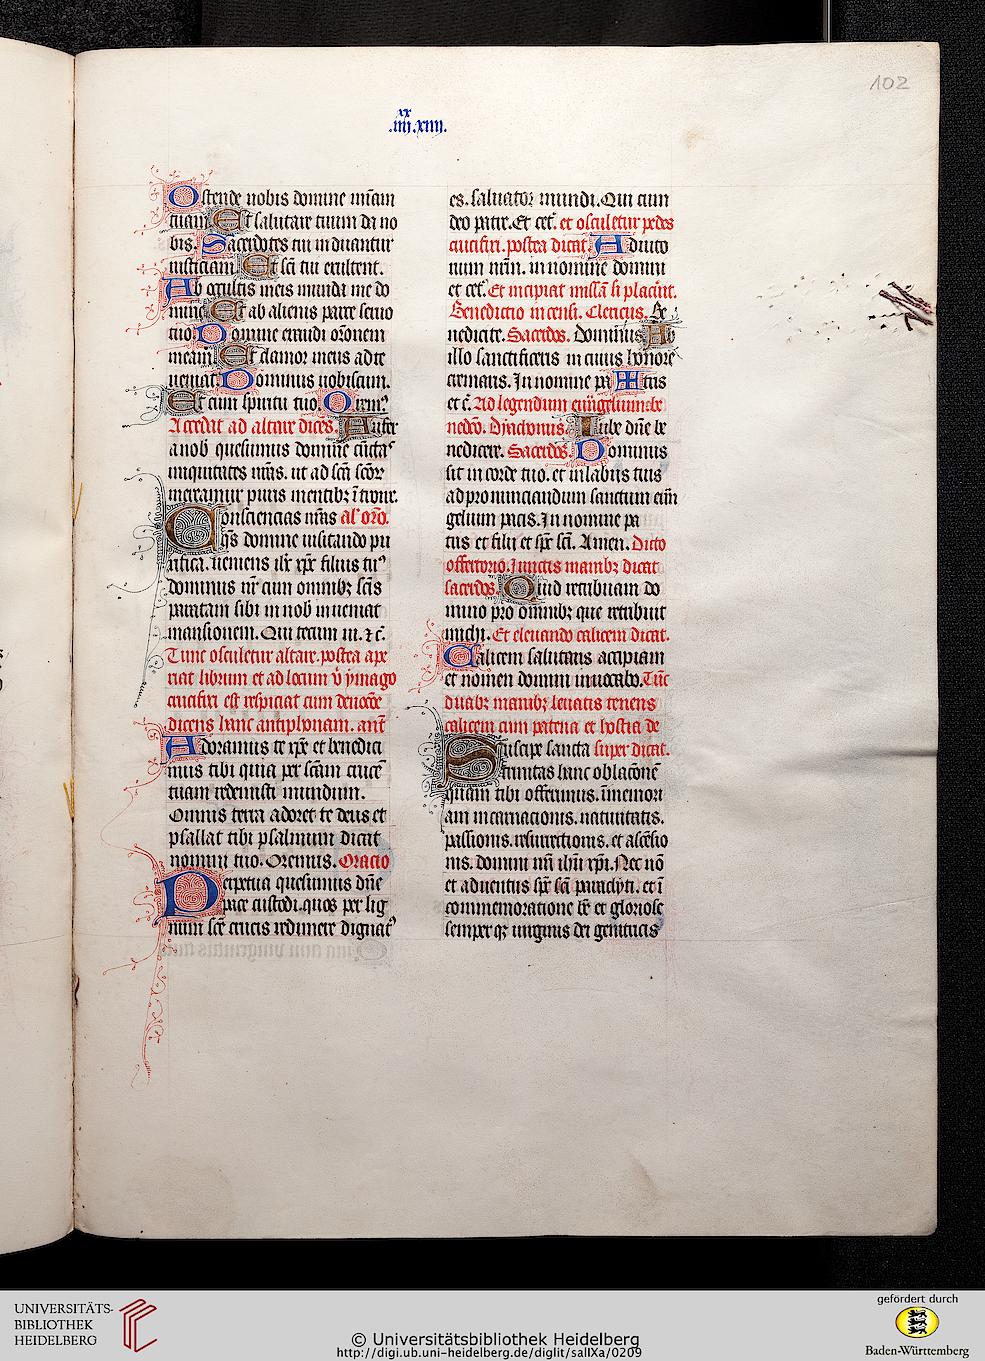 102
xx
.iiij.xiiij.
Ostende nobis domine mīam
tuam Et salutare tuum da no
bis. Sacerdotes tui induantur
iusticiam Et scī tui exultent.
Ab ocultis meis munda me do
mine Et ab alienis parce seruo
tuo Domine exaudi orōnem
meam Et clamor meus ad te
ueniat Dominus uobiscum.
Et cum spiritu tuo Orem⁹
Accedat ad altare dicēs. Aufer
a nob quesumus domine cūcta⁹
iniquitates nr̄as. ut ad scā scōꝝ
mereamur puris mentibꝫ ītroire.
Consciencias nr̄as al' orō.
q̄s domine uisitando pu
rifica. ueniens ih̄c xp̄c filius tu⁹
dominus nr̄ cum omnibꝫ scīs
paratam sibi in nob inueniat
mansionem. Qui tecum iu. ⁊ c̄.
Tunc osculetur altare. postea ape
riat librum et ad locum ū ymago
crucifixi est respiciat cum deuocōe
dicens hanc antiphonam. ant̄
Adoramus te xp̄e et benedici
mus tibi quia per scām crucē
tuam redemisti mundum.
Omnis terra adoret te deus et
psallat tibi psalmum dicat
nomini tuo. Oremus. Oracio
Perpetua quesumus dn̄e
pace custodi. quos per lig
num scē crucis redimere dignat⁹
es. saluator mundi. Qui cum
deo patre. Et cet̄. et osculetur pedes
crucifixi. postea dicat Adiuto
rium nr̄m. in nomine domini
et cet̄. Et incipiat missā si placuit.
Benedictio incensi. Clericus. Be
nedicite. Sacerdos. Dominus Ab
illo sanctificeris in cuius honore
cremaris. In nomine pa ✠ tris
et c̄. Ad legendum euūgelium be
nedcō. Dyaconus. Iube dn̄e be
nedicere. Sacerdos. Dominus
sit in corde tuo. et in labijs tuis
ad pronunciandum sanctum euā
gelium pacis. In nomine pa
tris et filii et sp̄c scī. Amen. Dicto
offertorio. Iunctis manibꝫ dicat
sacerdos. Quid retribuam do
mino pro omnibꝫ que retribuit
michi. Et eleuando calicem dicat.
Calicem salutaris accipiam
et nomen domini inuocabo. Tūc
duabꝫ manibꝫ leuatis tenens
calicem cum patena et hostia de
Suscipe sancta super dicat.
trinitas hanc oblacōnē
quam tibi offerimus. ī memori
am incarnacionis. natiuitatis.
passionis. resurrectionis. et ascēsio
nis. domini nr̄i ih̄u xp̄i. Nec nō
et aduentus sp̄c scī paraclyti. et ī
commemoratione tē et gloriose
semper qꝫ uirginis dei genitricis
UNIVERSITÄTS-
BIBLIOTHEK
HEIDELBERG
© Universitätsbibliothek Heidelberg
http://digi.ub.uni-heidelberg.de/diglit/salIXa/0209
gefördert durch
Baden-Württemberg